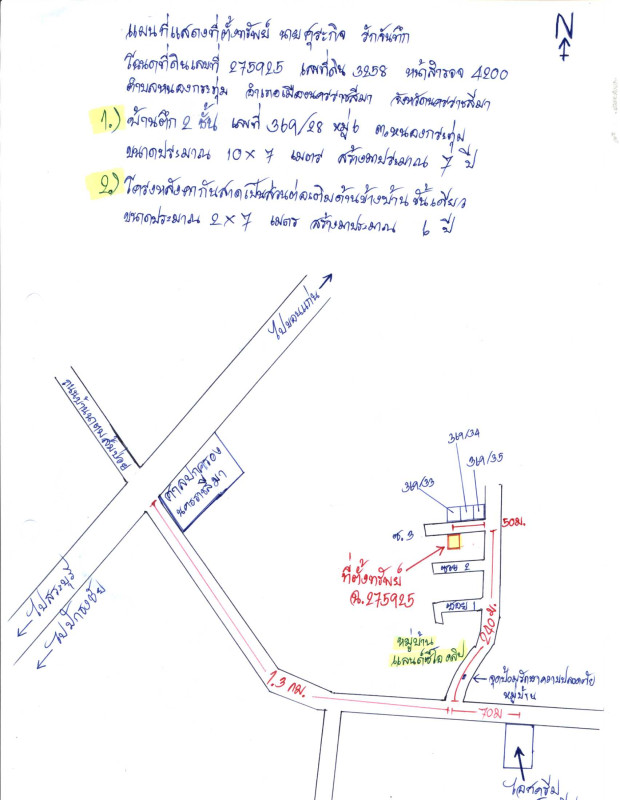 แผนที่แสดงที่ตั้งทรัพย์ นายสุระกิจ รักจันทึก
โฉนดที่ดินเลขที่ 275925 เลขที่ดิน 3258 หน้าสำรวจ 4200
ตำบลหนองกระทุ่ม อำเภอเมืองนครราชสีมา จังหวัดนครราชสีมา
1.) บ้านตึก 2 ชั้น เลขที่ 369/28 หมู่ 6 ต.หนองกระทุ่ม
ขนาดประมาณ 10 x 7 เมตร สร้างมาประมาณ 7 ปี
2.) โครงหลังคากันสาดเป็นส่วนต่อเติมด้านข้างบ้าน ชั้นเดียว
ขนาดประมาณ 2 x 7 เมตร สร้างมาประมาณ 6 ปี
N
ไปขอนแก่น
ศาลปกครอง
นครราชสีมา
ไปสระบุรี
ไปปักธงชัย
369/34
369/35
369/33
ซ. 3
50ม.
ที่ตั้งทรัพย์
ฉ.275925
ซอย 2
ซอย 1
240 ม.
หมู่บ้าน
แลนด์ซีโอ
จุดป้อมรักษาความปลอดภัย
หมู่บ้าน
1.3 กม.
70ม